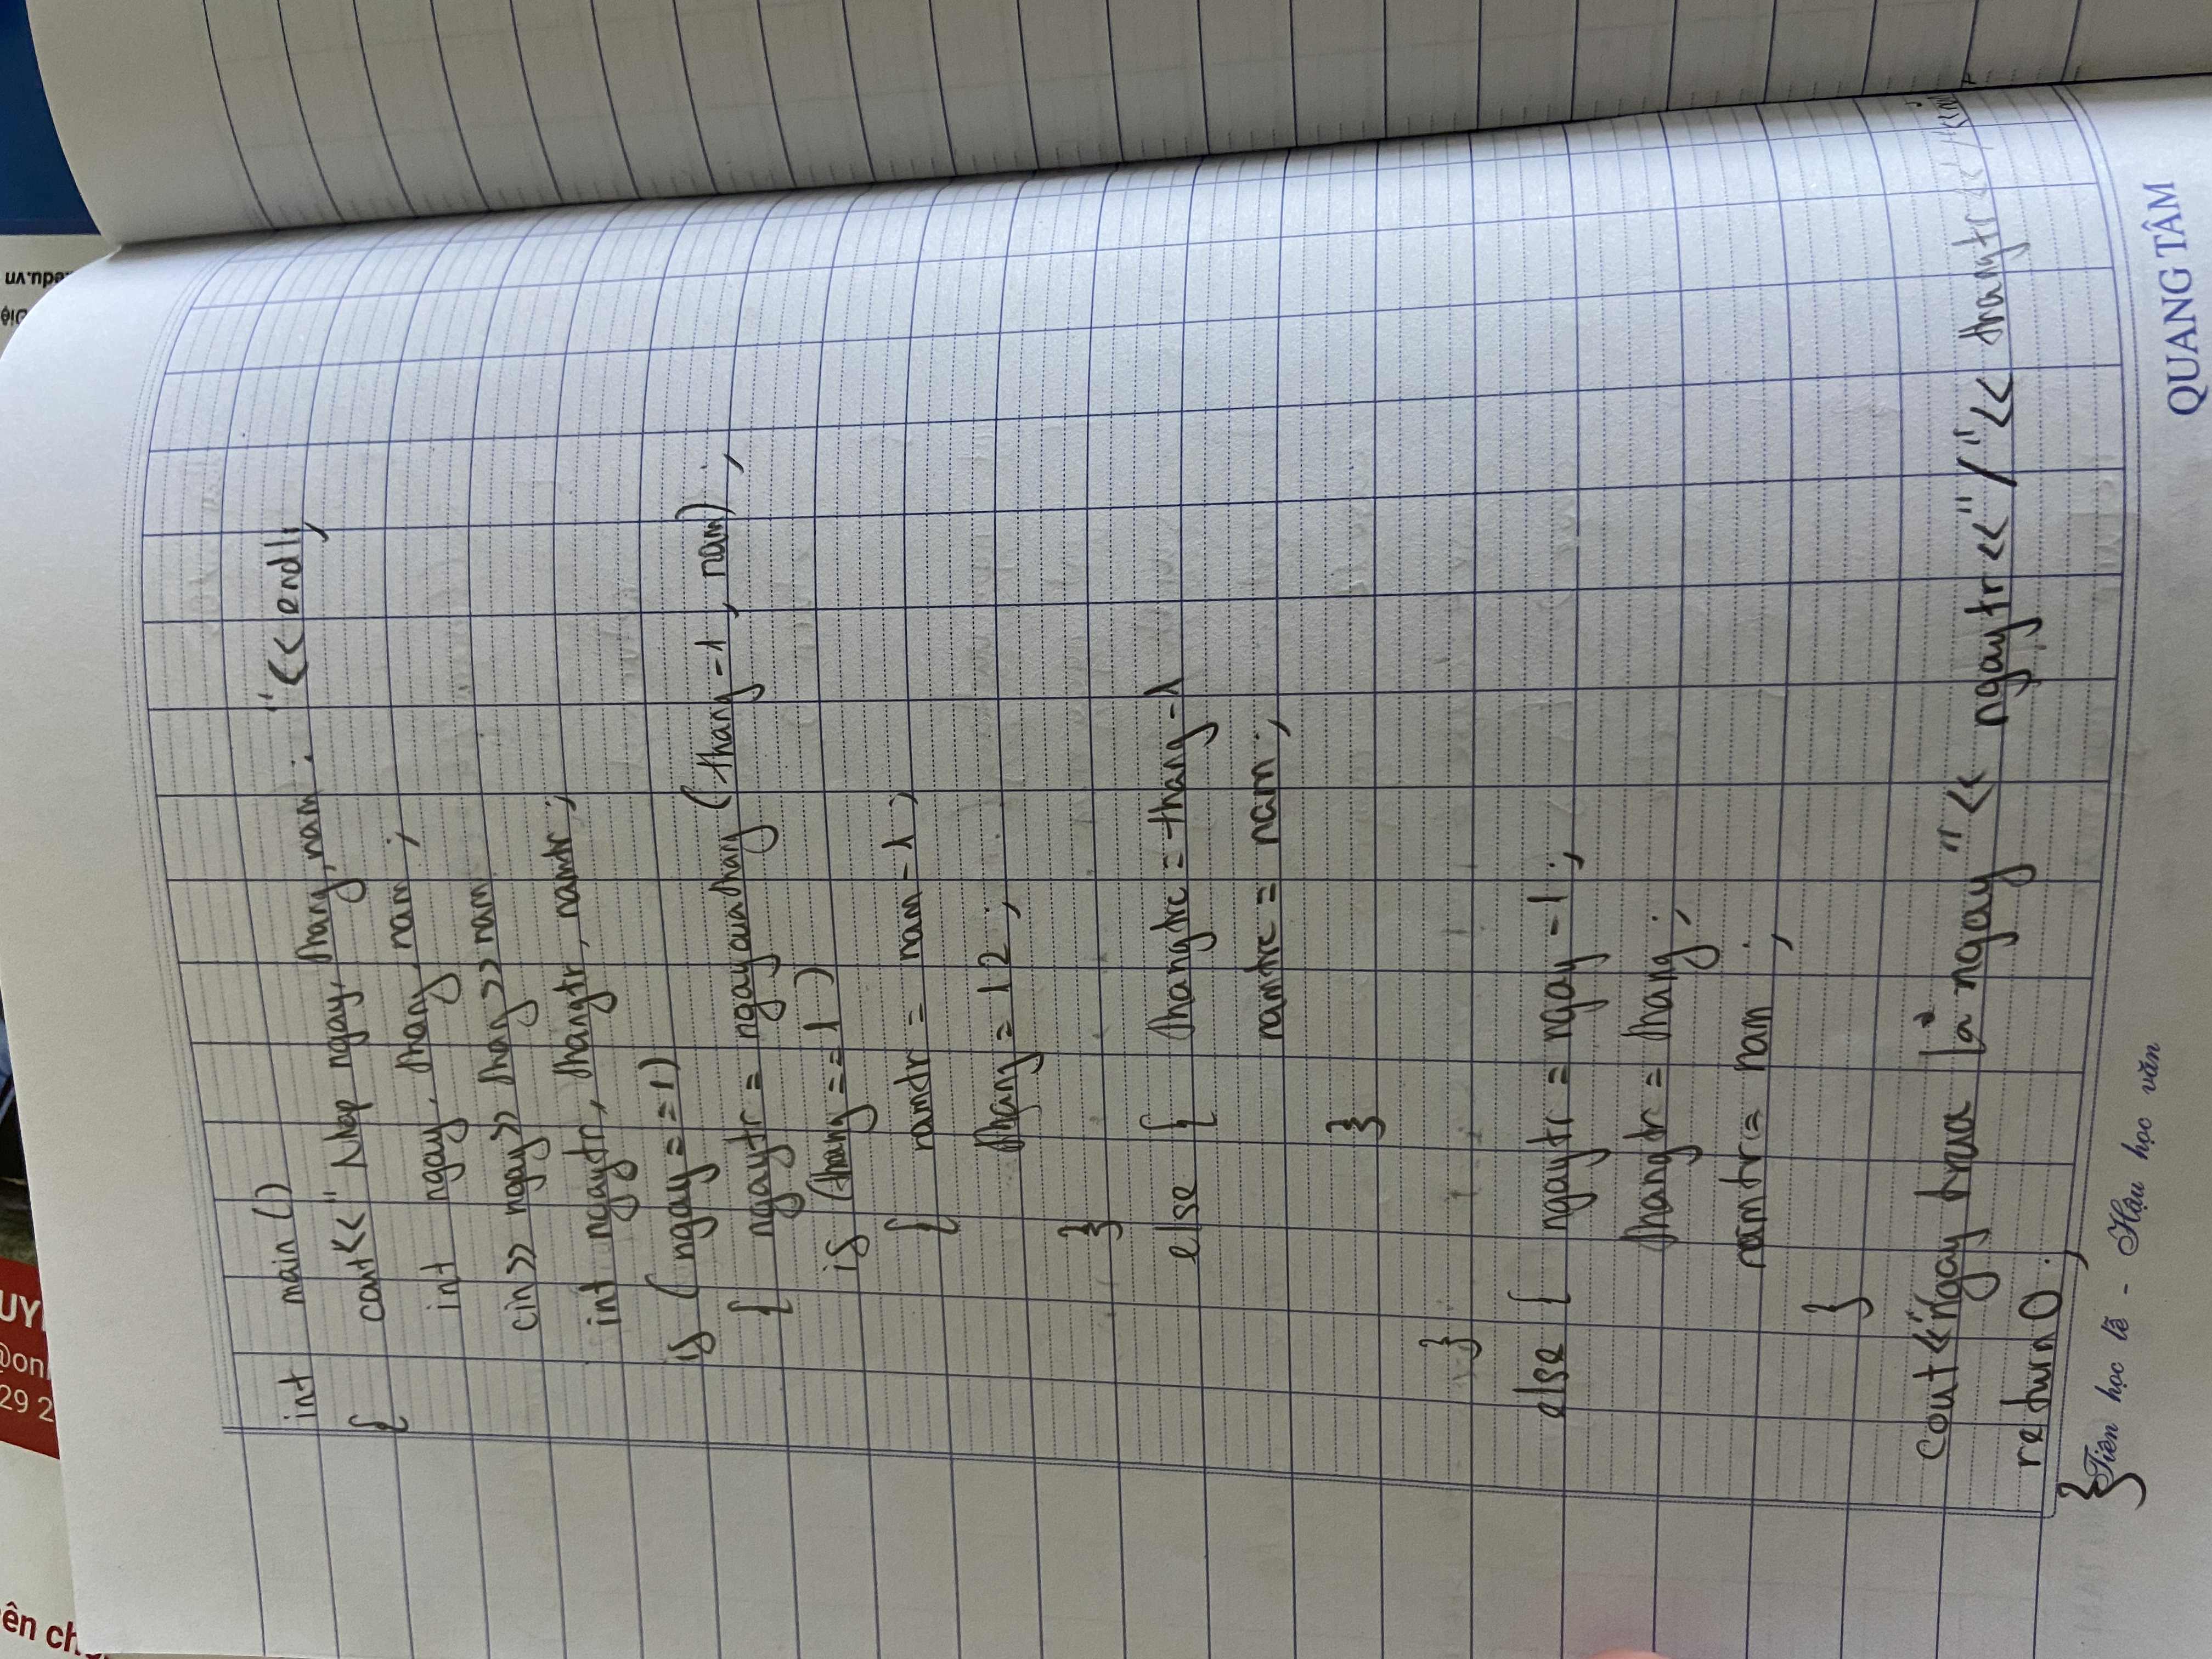 ên ch
UY
@on
29 2
Diệ
edu.vn
int main ()
{ cout<<" Nhap ngay, thang, nam : "<< endl;
int ngay, thang, nam ;
cin>> ngay>> thang >> nam
int ngaytr, thangtr, namtr ;
if ( ngay = = 1)
{ ngaytr = ngaycuathang (thang -1 , nam) ;
if (thang == 1 )
{ namtr = nam - 1 ;
thang = 12 ;
}
else { thangtrc = thang -1
namtrc = nam ;
}
}
else { ngaytr = ngay - 1 ;
thangtr = thang ;
namtr = nam ;
}
cout<<"ngay trua là ngay "<< ngaytr <<"/"<< thangtr <<"/"<<
return 0 ;
}
Tiên học lễ - Hậu học văn
QUANG TÂM